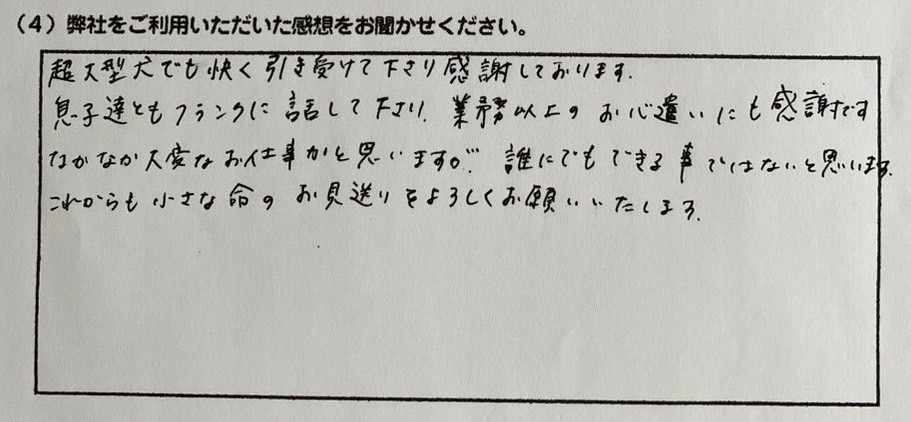 （4）弊社をご利用いただいた感想をお聞かせください。
超大型犬でも快く引き受けて下さり感謝しております。
息子達ともフランクに話して下さり、業務以上のお心遣いにも感謝です
なかなか大変なお仕事かと思いますが… 誰にでもできる事ではないと思います。
これからも小さな命のお見送りをよろしくお願いいたします。